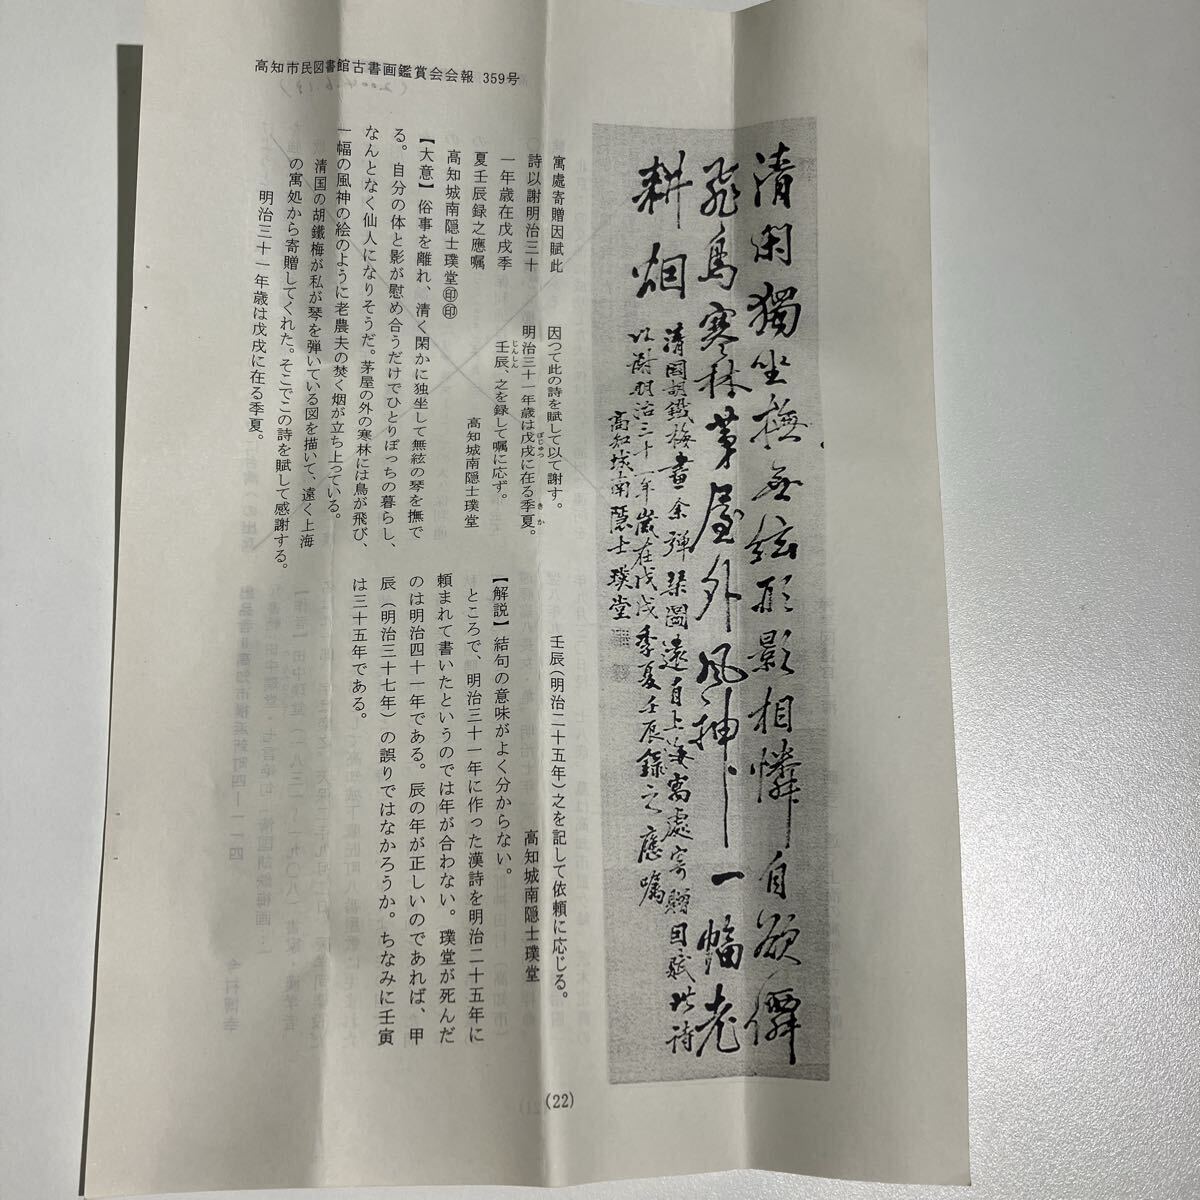 高知市民図書館古書画鑑賞会会報 359号
清閑獨坐撫無絃形影相憐自欲僊
飛鳥寒林茅屋外風神一幅老
耕烟
清国胡鐵梅畫余弾琴圖遠自上海寓處寄贈因賦此詩
以謝明治三十一年歳在戊戌季夏壬辰録之應嘱
高知城南隠士璞堂
寓處寄贈因賦此
詩以謝明治三十
一年歳在戊戌季
夏壬辰録之應嘱
高知城南隠士璞堂㊞㊞
因つて此の詩を賦して以て謝す。
明治三十一年歳は戊戌に在る季夏。
ぼじゅつ
きか
壬辰、之を録して嘱に応ず。
じんしん
高知城南隠士璞堂
【大意】俗事を離れ、清く閑かに独坐して無絃の琴を撫で
る。自分の体と影が慰め合うだけでひとりぽっちの暮らし、
なんとなく仙人になりそうだ。茅屋の外の寒林には鳥が飛び、
一幅の風神の絵のように老農夫の焚く烟が立ち上っている。
清国の胡鐵梅が私が琴を弾いている図を描いて、遠く上海
の寓処から寄贈してくれた。そこでこの詩を賦して感謝する。
明治三十一年歳は戊戌に在る季夏。
壬辰(明治二十五年)之を記して依頼に応じる。
高知城南隠士璞堂
【解説】結句の意味がよく分からない。
ところで、明治三十一年に作った漢詩を明治二十五年に
頼まれて書いたというのでは年が合わない。璞堂が死んだ
のは明治四十一年である。辰の年が正しいのであれば、甲
辰(明治三十七年)の誤りではなかろうか。ちなみに壬寅
は三十五年である。
(22)